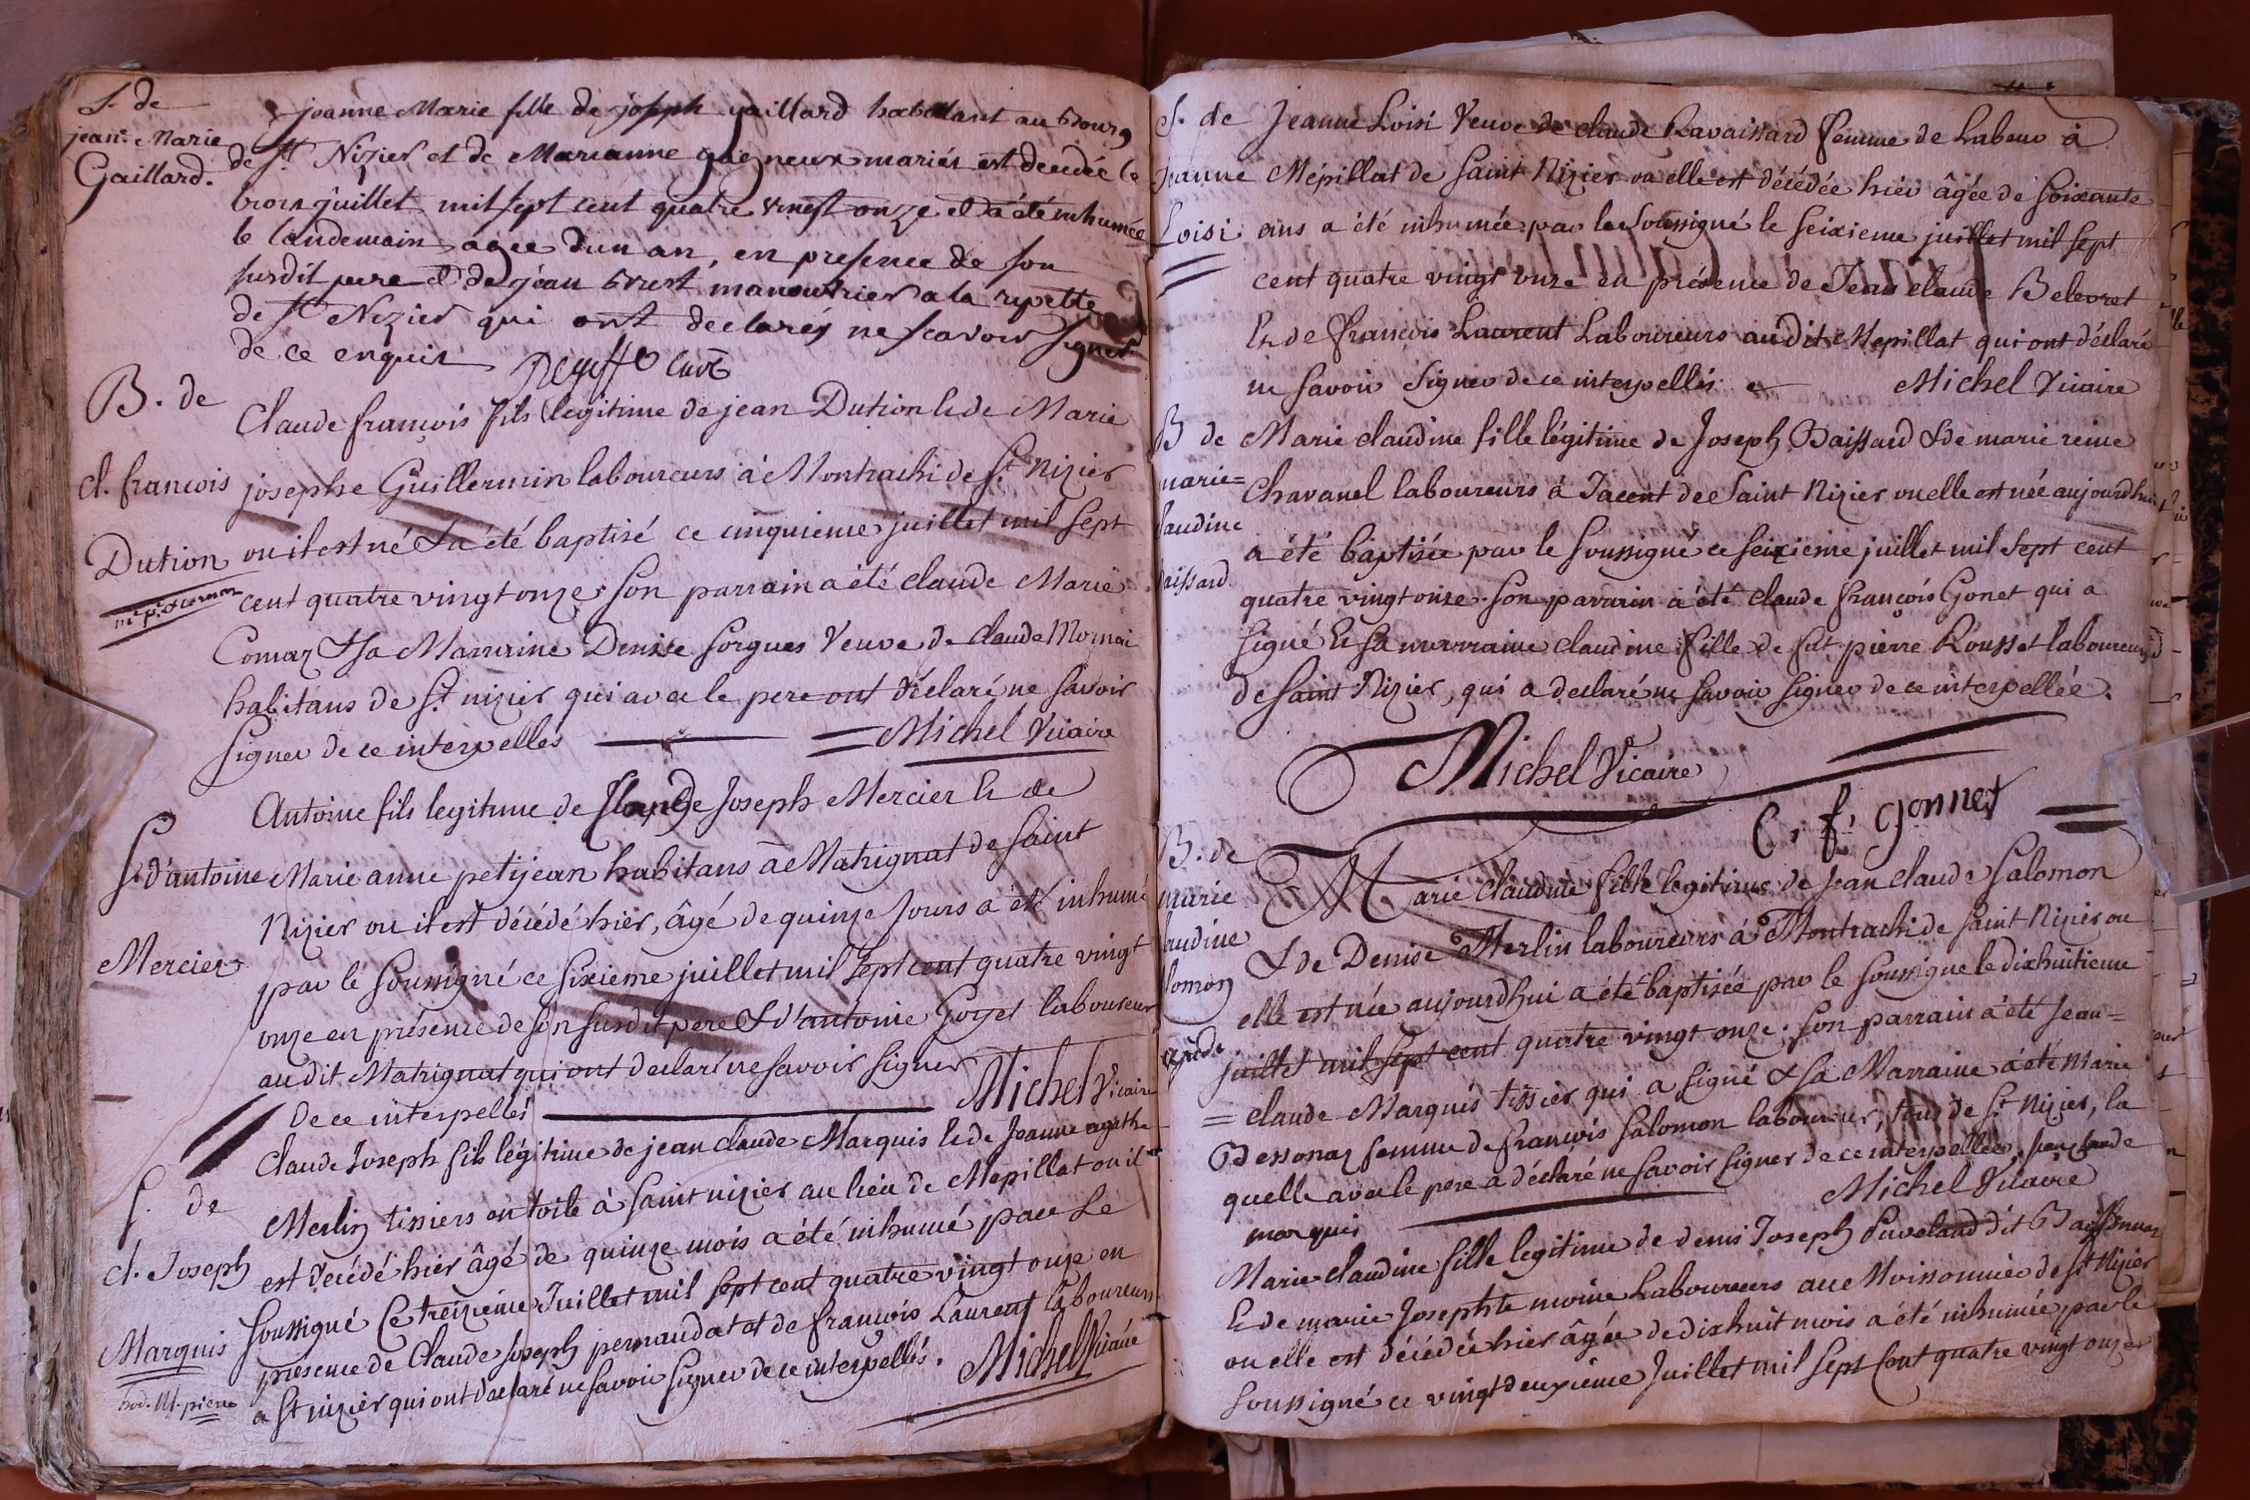 S. de
jeane. Marie
Gaillard.
jeanne Marie fille de joseph gaillard habitant au bourg
de St. Nizier et de Marianne gagneux mariés est decedée le
trois juillet mil sept cent quatre vingt onze et a été inhumée
le landemain agee d'un an, en presence de son
susdit pere et de jean brest manouvrier a la
de St Nizier qui ont declarés ne scavoir signer
de ce enquis curé
B. de
cl. françois
Dution
Claude françois fils legitime de jean Dution & de Marie
josephe Guillermin laboureurs à Montrachi de St. Nizier
ou il est né & a été baptisé ce cinquieme juillet mil sept
cent quatre vingt onze son parrain a été claude Marie
Comaz & sa Marraine Denise sorgues Veuve de claude Mornai
habitans de St. nizier qui avec le pere ont déclaré ne savoir
signer de ce interpellés = Michel Vicaire
S. d'antoine
Mercier
Antoine fils legitime de Claude Joseph Mercier & de
Marie anne petijean habitans à Matrignat de saint
Nizier ou il est décédé hier, âgé de quinze jours a été inhumé
par le soussigné ce sixieme juillet mil sept cent quatre vingt
onze en présence de son susdit pere & d'antoine Goyet laboureur
audit Matrignat qui ont declaré ne savoir signer
de ce interpellés Michel Vicaire
S. de
cl. Joseph
Marquis
Claude Joseph fils légitime de jean claude Marquis & de Jeanne agathe
Merlin tissiers en toile à saint nizier au lieu de Mepillat ou il
est décédé hier âgé de quinze mois a été inhumé par le
soussigné ce treizième Juillet mil sept cent quatre vingt onze en
présence de Claude Joseph pernaudat et de françois Laurent laboureurs
a St nizier qui ont déclaré ne savoir signer de ce interpellés. Michel Vicaire
S. de
Jeanne
Loisi
Jeanne Loisi Veuve de claude Ravaissard femme de Labeur à
Mépillat de saint Nizier ou elle est décédée hier âgée de soixante
ans a été inhumée par le soussigné le seizieme juillet mil sept
cent quatre vingt onze en présence de Jean claude Belevret
& de françois Laurent Laboureurs audit Mepillat qui ont déclaré
ne savoir signer de ce interpellés Michel Vicaire
B de
marie=
claudine
baissard
Marie claudine fille légitime de Joseph Baissard & de marie reine
Chavanel laboureurs à Jacent de saint Nizier ou elle est née aujourdhui
a été baptisée par le soussigné ce seizieme juillet mil sept cent
quatre vingt onze. son parrain a été claude françois Gonet qui a
signé & sa marraine claudine fille de fut pierre Rousset laboureur
de saint Nizier, qui a declaré ne savoir signer de ce interpellée.
Michel Vicaire
C. f. gonnet
B. de
marie
claudine
salomon
Marie claudine fille legitime de jean claude Salomon
& de Denise Merlin laboureurs à Montrachi de saint Nizier ou
elle est née aujourdhui a été baptisée par le soussigné le dixhuitieme
juillet mil sept cent quatre vingt onze. son parrain a été Jean=
= claude Marquis tissier qui a signé & sa Marraine a été Marie
Dessonaz femme de françois salomon laboureur, tous de St. Nizier, la
quelle avec le pere a déclaré ne savoir signer de ce interpellée. jean claude
marquis Michel Vicaire
Marie claudine fille legitime de denis Joseph Puveland dit
& de marie Josephte moine Laboureurs au Moissonnier de St Nizier
ou elle est décédée hier âgée de dixhuit mois a été inhumée par le
soussigné ce vingt deuxième Juillet mil sept cent quatre vingt onze